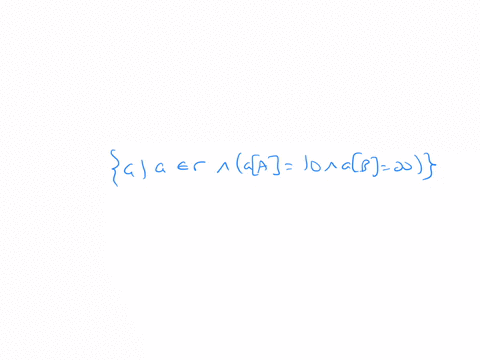 {a | a ∈ r ∧ (a[A] = 10 ∧ a[B] = 20)}